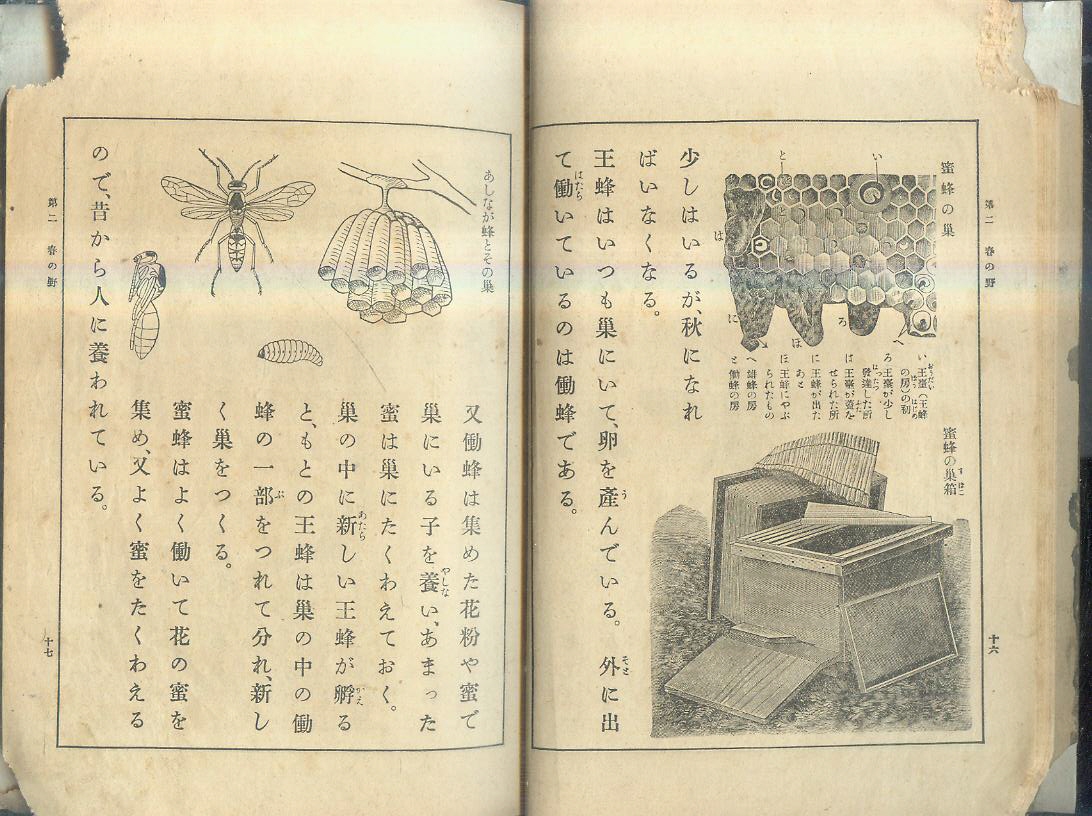 第二 春の野
十六
蜜蜂の巣
い
と
と
は
に
ほ
ろ
へ
い 王臺(王蜂
の房)の初
ろ 王臺が少し
發達した所
は 王臺が蓋を
せられた所
に 王蜂が出た
あと
ほ 王蜂にやぶ
られたもの
へ 雄蜂の房
と 働蜂の房
蜜蜂の巣箱
少しはいるが、秋になれ
ばいなくなる。
王蜂はいつも巣にいて、卵を產んでいる。 外に出
て働いているのは働蜂である。
あしなが蜂とその巣
又働蜂は集めた花粉や蜜で
巣にいる子を養い、あまった
蜜は巣にたくわえておく。
巣の中に新しい王蜂が孵る
と、もとの王蜂は巣の中の働
蜂の一部をつれて分れ、新し
く巣をつくる。
蜜蜂はよく働いて花の蜜を
集め、又よく蜜をたくわえる
ので、昔から人に養われている。
第二 春の野
十七